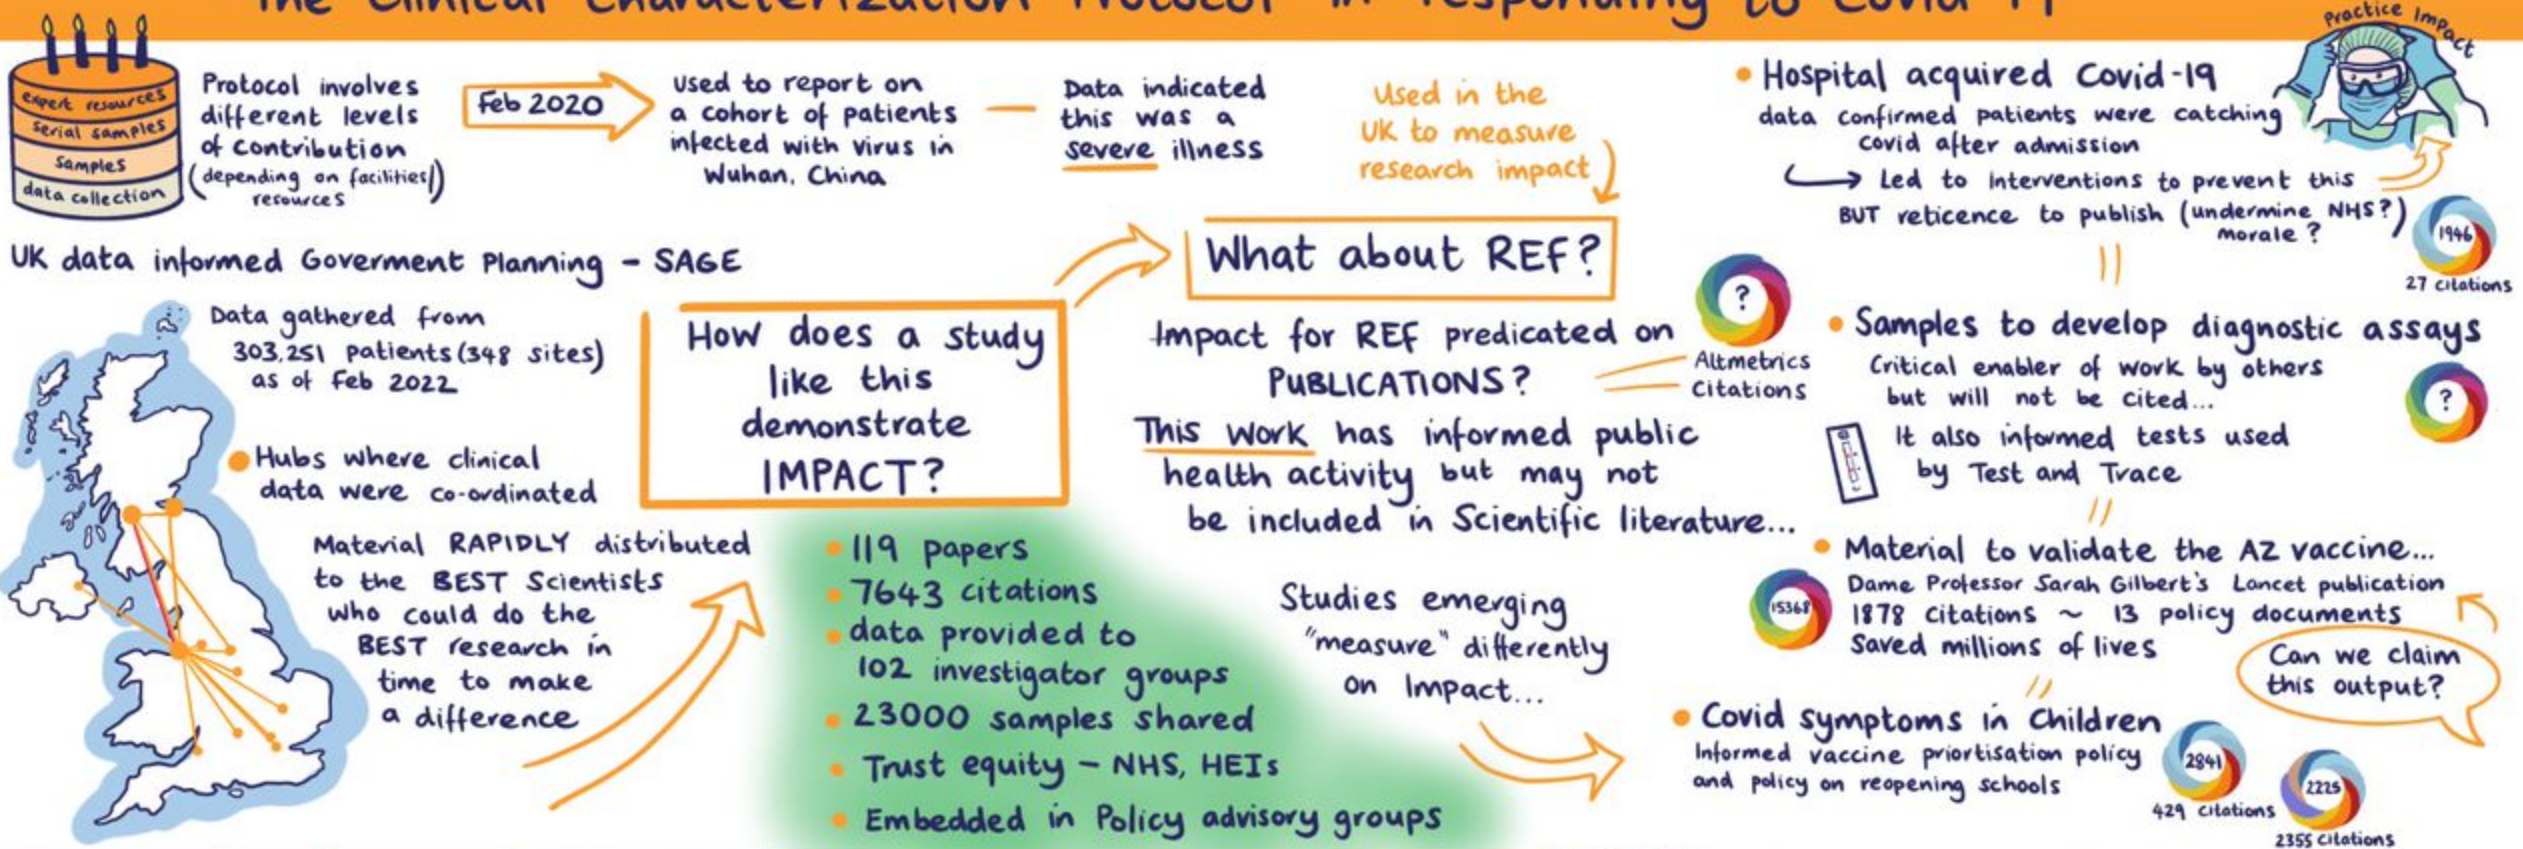 The Clinical Characterization Protocol in responding to Covid-19
expert resources
serial samples
samples
data collection
Protocol involves
different levels
of contribution
(depending on facilities/)
resources
Feb 2020
Used to report on
a cohort of patients
infected with virus in
Wuhan, China
Data indicated
this was a
severe illness
Used in the
UK to measure
research impact
UK data informed Goverment Planning - SAGE
Data gathered from
303,251 patients (348 sites)
as of Feb 2022
Hubs where clinical
data were co-ordinated
Material RAPIDLY distributed
to the BEST Scientists
who could do the
BEST research in
time to make
a difference
How does a study
like this
demonstrate
IMPACT?
119 papers
7643 citations
data provided to
102 investigator groups
23000 samples shared
Trust equity - NHS, HEIs
Embedded in Policy advisory groups
What about REF?
Impact for REF predicated on
PUBLICATIONS?
?
Altmetrics
Citations
This work has informed public
health activity but may not
be included in Scientific literature...
Studies emerging
"measure" differently
on Impact...
Practice Impact
Hospital acquired Covid-19
data confirmed patients were catching
covid after admission
Led to interventions to prevent this
BUT reticence to publish (undermine NHS?)
morale?
1946
27 citations
Samples to develop diagnostic assays
Critical enabler of work by others
but will not be cited...
?
It also informed tests used
by Test and Trace
Material to validate the AZ vaccine...
Dame Professor Sarah Gilbert's Lancet publication
15368
1878 citations ~ 13 policy documents
Saved millions of lives
Can we claim
this output?
Covid symptoms in Children
Informed vaccine priortisation policy
and policy on reopening schools
2841
429 citations
2225
2355 citations